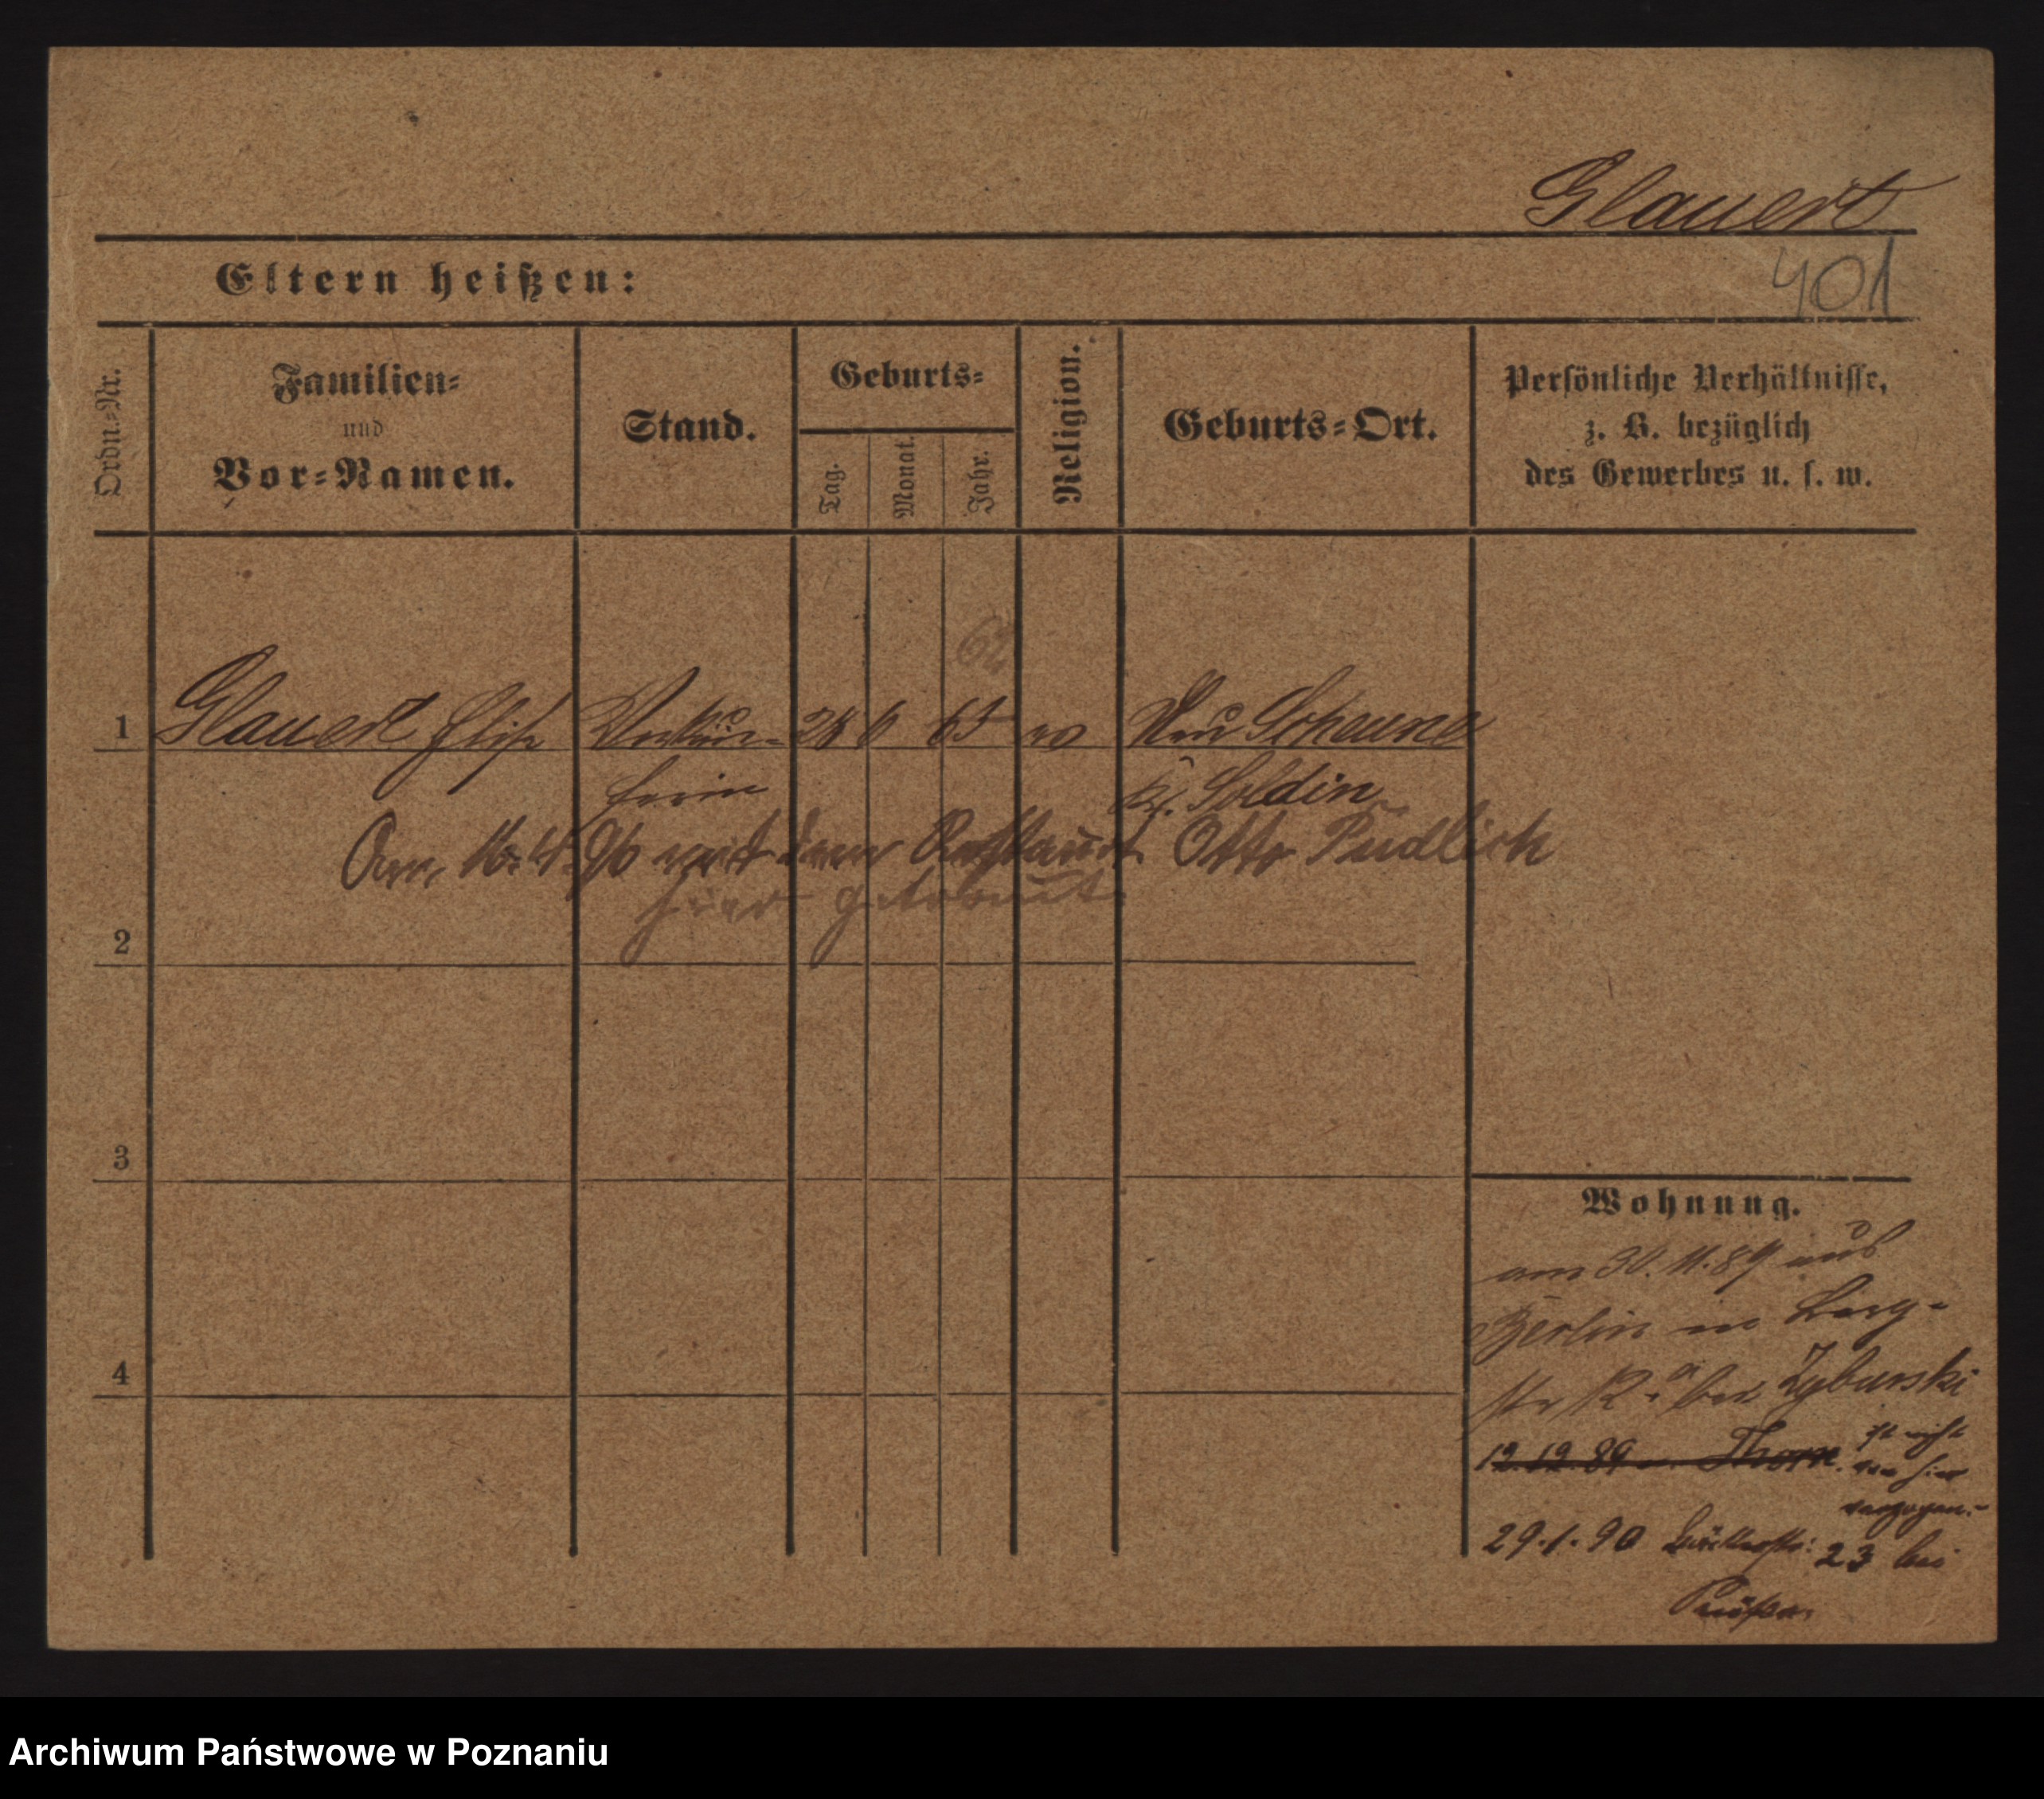 Glauert
401
Eltern heißen:
Ordn.-Nr.
Familien-
und
Vor-Namen.
Stand.
Geburts-
Tag.
Monat.
Jahr.
Religion.
Geburts-Ort.
Persönliche Verhältnisse,
z. B. bezüglich
des Gewerbes u. s. w.
62
1 Glauert Elise Verkäu- 28 6 65 ev Neu Scheune
ferin Kr. Soldin
Am 16.4.96 mit dem Restaurt. Otto Pudlich
hier getraut.
2
3
4
Wohnung.
am 30.11.89 aus
Berlin in Berg-
str 12 a bei Zyburski
12.12.89 n. Thorn. ist nicht
von hier
verzogen.-
29.1.90 23 bei
Archiwum Państwowe w Poznaniu